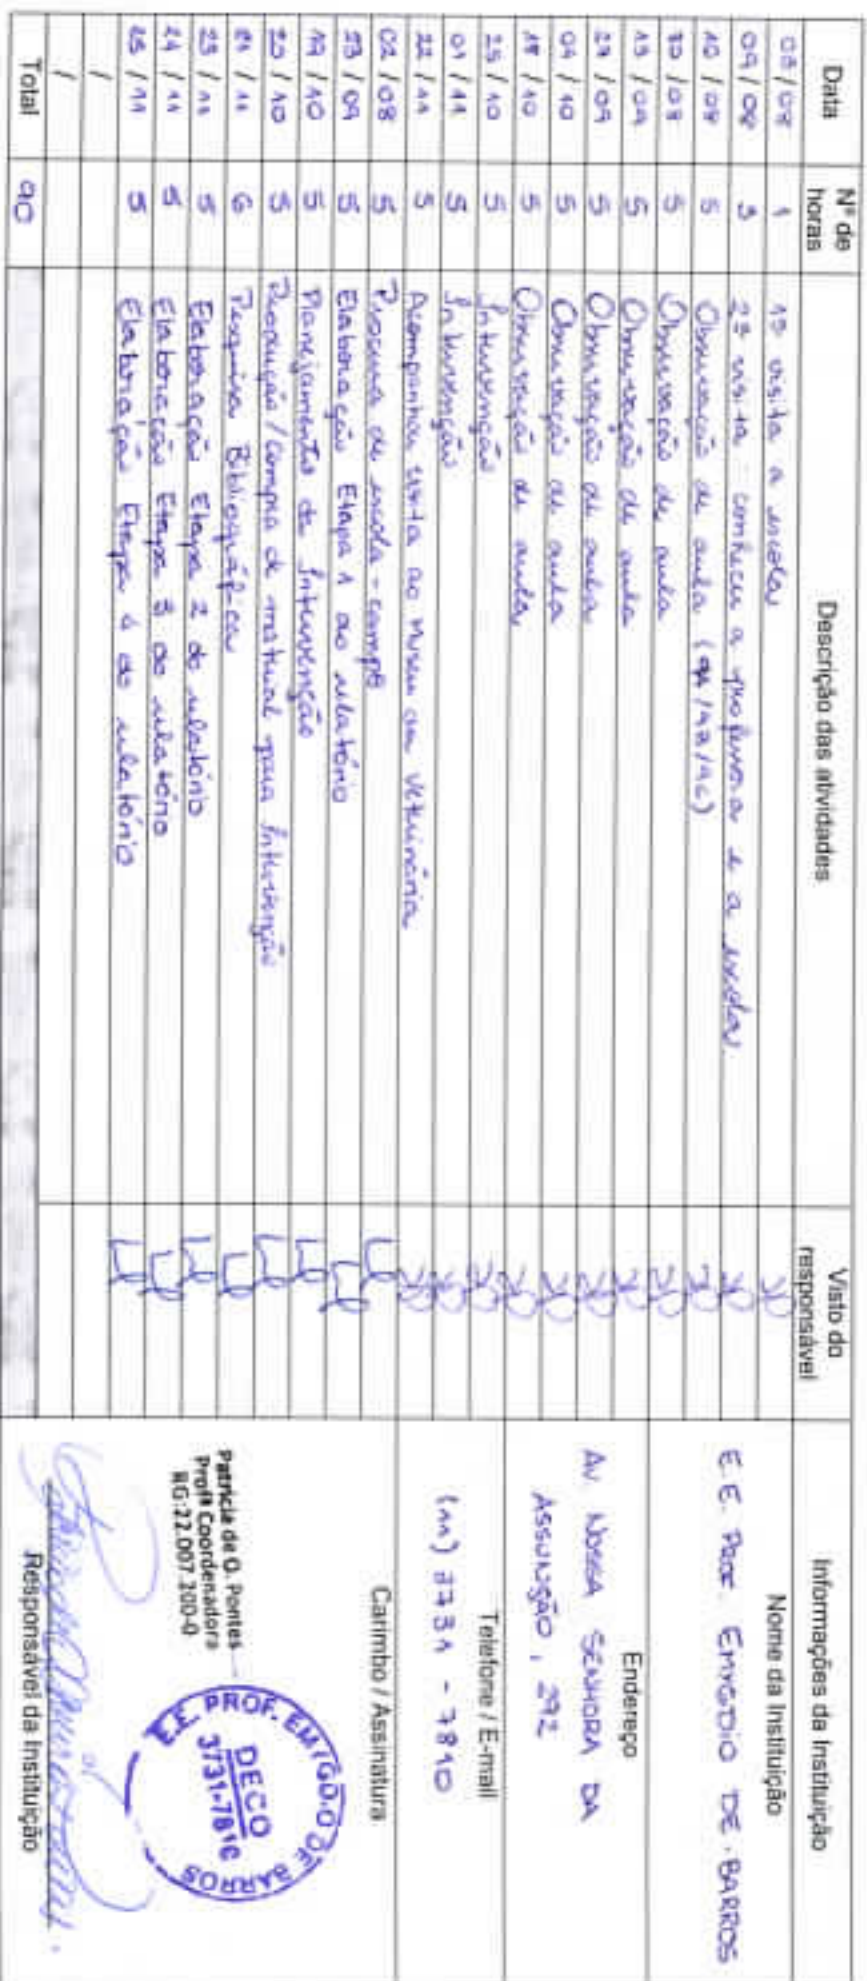 Data Nº de horas Descrição das atividades Visto do responsável Informações da Instituição
03/08 1 1ª visita a escola
09/08 3 2ª visita: conhecer a professora e a escola.
10/08 5 Observação de aula
30/08 5 Observação de aula
13/09 5 Observação de aula
27/09 5 Observação de aula
04/10 5 Observação de aula
18/10 5 Observação de aula
25/10 5 Intervenção
01/11 5 Intervenção
22/11 5 Acompanhar visita ao Museu de Veterinária
02/08 5 Procura de escola-campo
23/09 5 Elaboração Etapa 1 do relatório
19/10 5 Planejamento da Intervenção
20/10 5 Produção/compra de material para Intervenção
21/11 6 Pesquisa Bibliográfica
23/11 5 Elaboração Etapa 2 do relatório
24/11 5 Elaboração Etapa 3 do relatório
25/11 5 Elaboração Etapa 4 do relatório
/
/
Total 90
Nome da Instituição
E.E. Prof. EMYGDIO DE BARROS
Endereço
AV. NOSSA SENHORA DA
ASSUNÇÃO, 292
Telefone / E-mail
(11) 3731-7810
Carimbo / Assinatura
Patrícia de O. Pontes
Profª Coordenadora
RG:22.007.200-0
E.E. PROF. EMYGDIO DE BARROS
DECO
3731-7810
Responsável da Instituição